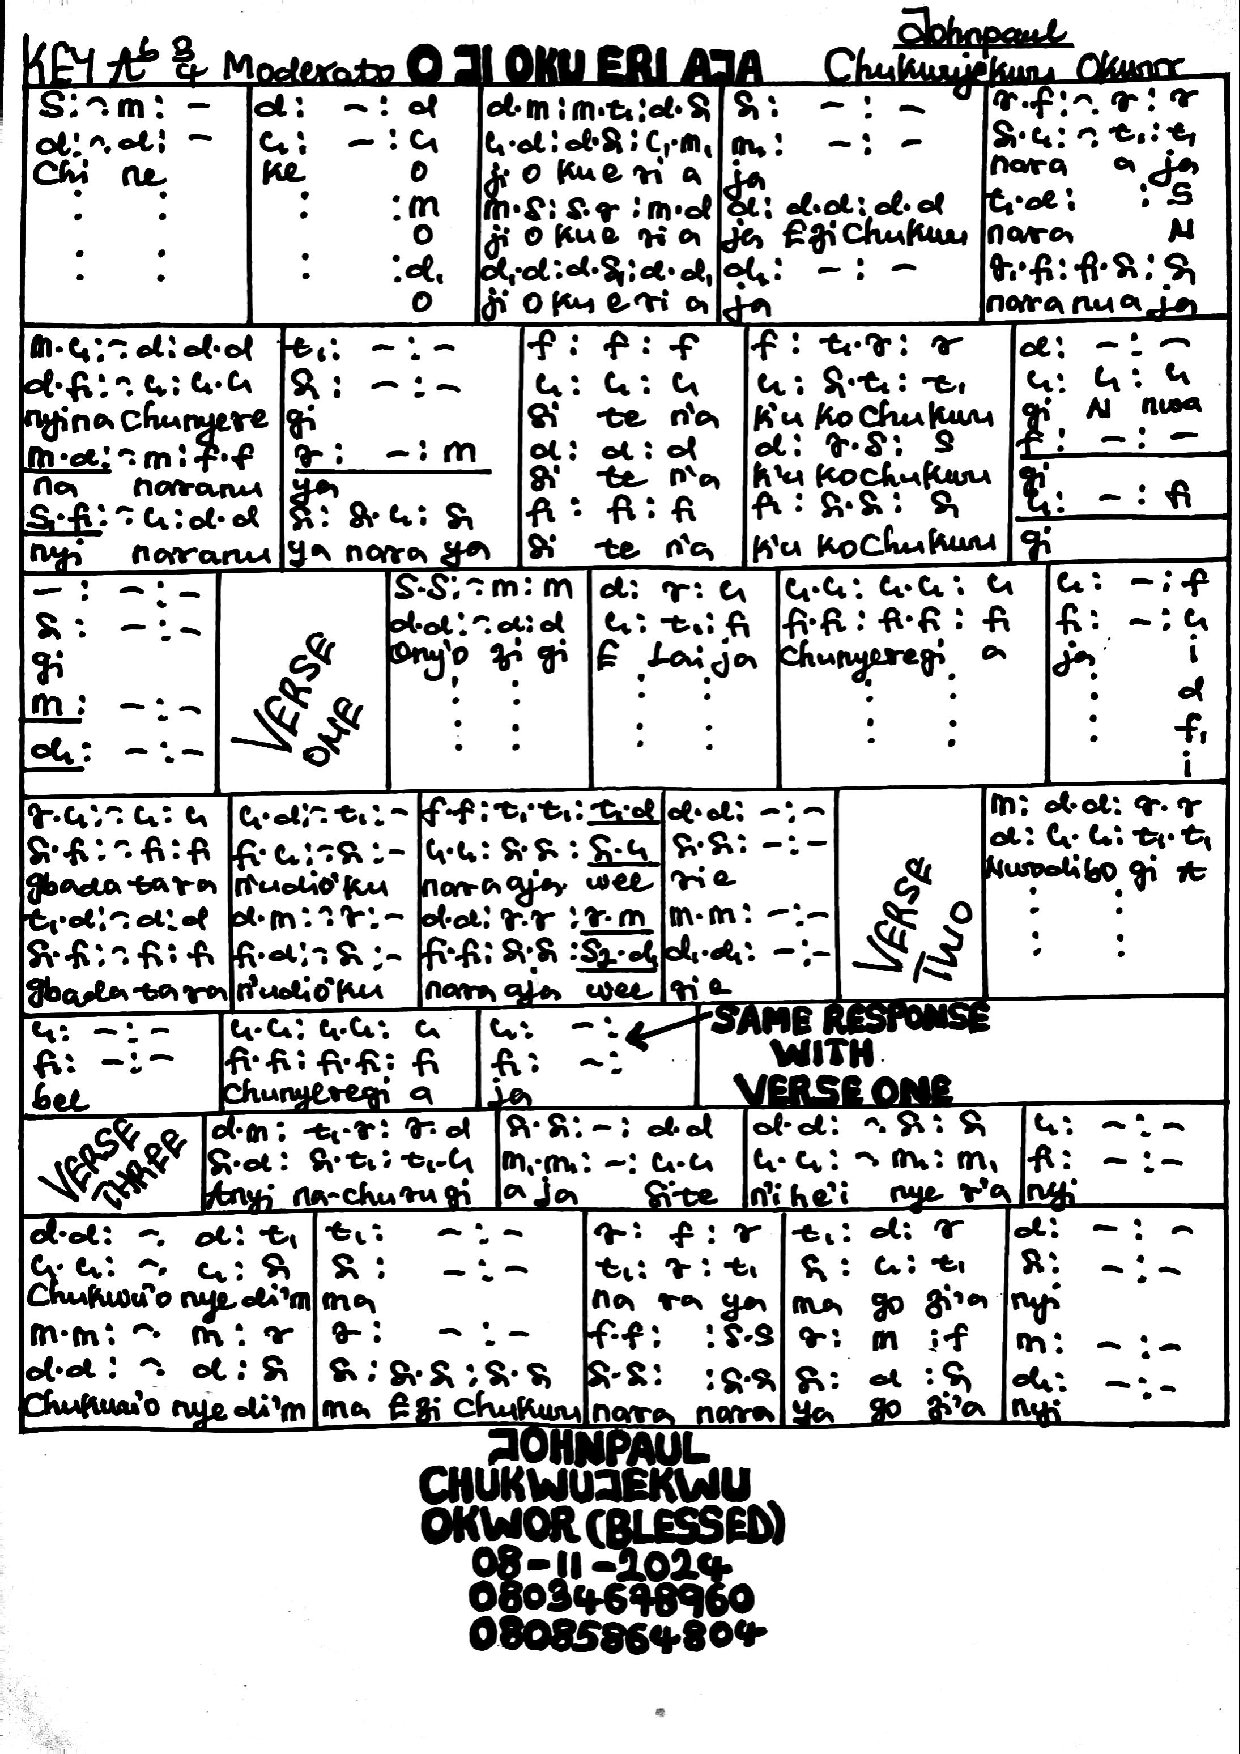 KEY Ab 3/4 Moderato O JI OKU ERI AJA Johnpaul Chukwujekwu Okwor
S:~m:- | d: -:d | d.m:m.t₁:d.S₁ | S₁: -:- | r.f:~.r:r
d:~.d:- | l₁: -:l₁ | l₁.d:d.S₁:l₁.m₁ | m₁: -:- | S₁.l₁:~.t₁:t₁
Chi ne | ke o | ji o ku e ri a | ja | nara a ja
: : | : :m | m.s:s.r:m.d | d: d.d:d.d | t₁.d: :S
o | ji o ku e ri a | ja Ezi Chukwu | nara N
: : | : :d₁ | d₁.d:d.S₁:d.d₁ | d₁: -:- | r₁.f₁:f₁.S₁:S₁
o | ji o ku e ri a | ja | nara nu a ja
m.l₁:~d:d.d | t₁: -:- | f: f: f | f: t₁.r: r | d: -:-
d.f₁:~.l₁:l₁.l₁ | S₁: -:- | l₁: l₁: l₁ | l₁: S₁.t₁: t₁ | l₁: l₁: l₁
nyina Chunyere | gi | Si te n'a | k'u ko Chukwu | gi N nwa
m.d:~m:f.f | r: -:m | d: d: d | d: r.s: s | f: -:-
na naranu | ya | Si te n'a | k'u ko Chukwu | gi
S₁.f₁:~l₁:d.d | S₁: S₁.l₁: S₁ | f₁: f₁: f₁ | f₁: S₁.S₁: S₁ | l₁: -:f₁
nyi naranu | ya nara ya | Si te n'a | k'u ko Chukwu | gi
-: -:- | VERSE ONE | S.S:~m:m | d: r: l₁ | l₁.l₁: l₁.l₁: l₁ | l₁: -:f
S₁: -:- | d.d:~d:d | l₁: t₁: f₁ | f₁.f₁: f₁.f₁: f₁ | f₁: -:l₁
gi | Ony'o zi gi | E Lai ja | Chunyeregi a | ja i
m: -:- | : : | : : | : : | : d
d₁: -:- | : : | : : | : : | : f₁
i
r.l₁:~l₁:l₁ | l₁.d:~t₁:- | f.f:t₁.t₁:t₁.d | d.d: -:- | VERSE TWO | m: d.d: r.r
S₁.f₁:~f₁:f₁ | f₁.l₁:~S₁:- | l₁.l₁:S₁.S₁:S₁.l₁ | S₁.S₁: -:- | d: l₁.l₁:t₁.t₁
gbada ta ra | n'udio'ku | nara aja wee | rie | Nwodibo gi
t₁.d:~d:d | d.m:~r:- | d.d:r.r:r.m | m.m: -:- | : :
S₁.f₁:~f₁:f₁ | f₁.d:~S₁:- | f₁.f₁:S₁.S₁:S₂.d₁ | d₁.d₁: -:- | : :
gbada ta ra | n'udio'ku | nara aja wee | rie
l₁: -:- | l₁.l₁: l₁.l₁: l₁ | l₁: -: | SAME RESPONSE
f₁: -:- | f₁.f₁: f₁.f₁: f₁ | f₁: -: | WITH
bee | Chunyeregi a | ja | VERSE ONE
VERSE THREE | d.m: t₁.r: r.d | S₁.S₁: -: d.d | d.d: ~S₁: S₁ | l₁: -:-
S₁.d: S₁.t₁: t₁.l₁ | m₁.m₁: -: l₁.l₁ | l₁.l₁: ~m₁: m₁ | f₁: -:-
Anyi na-churugi | a ja Site | n'ihe'i nye r'a | nyi
d.d: ~. d: t₁ | t₁: -:- | r: f: r | t₁: d: r | d: -:-
l₁.l₁: ~. l₁: S₁ | S₁: -:- | t₁: r: t₁ | S₁: l₁: t₁ | S₁: -:-
Chukwu'o nye di'm | ma | na ra ya | ma go zi'a | nyi
m.m: ~. m: r | r: -:- | f.f: :S.S | r: m :f | m: -:-
d.d: ~. d: S₁ | S₁: S₁.S₁: S₁.S₁ | S₁.S₁: :S₁.S₁ | S₁: d :S₁ | d₁: -:-
Chukwu'o nye di'm | ma Ezi Chukwu | nara nara | ya go zi'a | nyi
JOHNPAUL
CHUKWUJEKWU
OKWOR (BLESSED)
08-11-2024
08034678960
08085864804